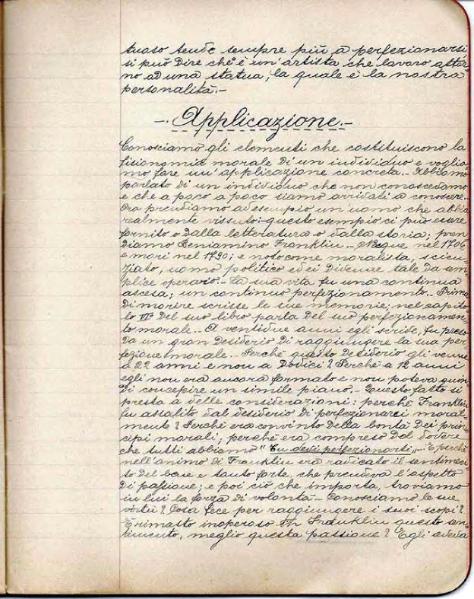 tuoso tende sempre più a perfezionarsi
si può Dire che è un'artista che lavora attor
no ad una statua, la quale è la nostra
personalità.-
-. Applicazione.-
Conosciamo gli elementi che costituiscono la
fisionomia morale Di un individuo e voglia
mo fare un'applicazione concreta.- Abbiamo
parlato Di un individuo che non conoscevamo
e che a poco a poco siamo arrivati a conoscere.
Ora prendiamo ad esempio un uomo che abbia
realmente vissuto: questo esempio ci può essere
fornito o Dalla letteratura o Dalla storia; pren
Diamo Beniamino Franklin.- Nacque nel 1706
e morì nel 1790; è noto come moralista, scien
ziato, uomo politico ed ei Divenne tale Da sem
plice operaio.- La sua vita fu una continua
ascesa, un continuo perfezionamento.- Prima
Di morire scrisse le sue memorie; nel capito
lo Del suo libro parla Del suo perfezionamen
to morale.- A ventidue anni egli scrive, fu preso
Da un gran Desiderio Di raggiungere la sua per
fezione morale.- Perché questo Desiderio gli venne
a 22 anni e non a Dodici? Perché a 12 anni
egli non era ancora formato e non poteva quin
Di concepire un simile piano.- Questo fatto si
presta a Delle considerazioni: perché Franklin
fu assalito Dal Desiderio Di perfezionarsi moral
mente? Perché era convinto Della bontà Dei prin
cipi morali, perché era compreso Del Dovere
che tutti abbiamo "Tu devi perfezionarti".- E perché
nell'animo Di Franklin era radicato il sentimen
to Del bene e tanto forte che prendeva l'aspetto
Di passione; e poi ciò che importa, troviamo
in lui la forza Di volontà.- Conosciamo le sue
virtù? Cosa fece per raggiungere i suoi scopi?
È rimasto inoperoso in Franklin questo sen
timento, meglio questa passione? Egli aveva